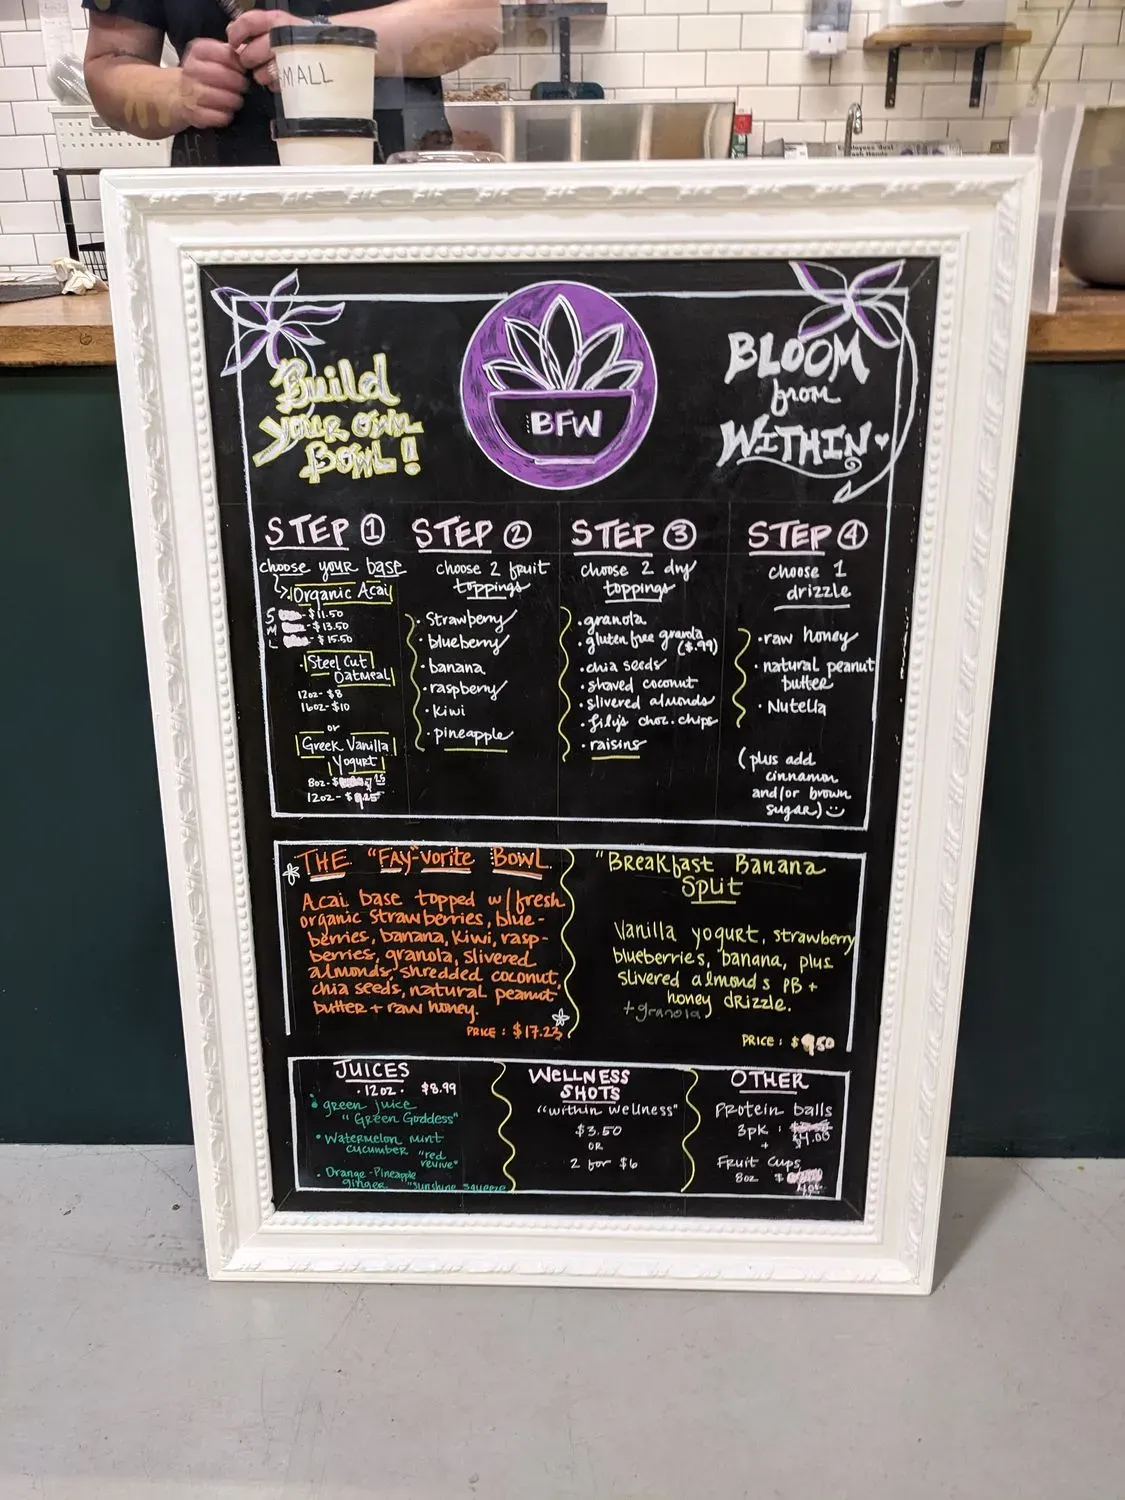 SMALL
Employees Must
Wash Hands
Build
your own
Bowl!
BFW
BLOOM
from
WITHIN
STEP 1
choose your base
Organic Acai
S - $11.50
M - $13.50
L - $15.50
Steel Cut
Oatmeal
12oz - $8
16oz - $10
or
Greek Vanilla
Yogurt
8oz - $
12oz - $
STEP 2
choose 2 fruit
toppings
• Strawberry
• blueberry
• banana
• raspberry
• Kiwi
• pineapple
STEP 3
choose 2 dry
toppings
• granola
• gluten free granola
($.99)
• chia seeds
• shaved coconut
• slivered almonds
• Lily's choc. chips
• raisins
STEP 4
choose 1
drizzle
• raw honey
• natural peanut
butter
• Nutella
(plus add
cinnamon
and/or brown
sugar)
THE "FAY"-vorite Bowl
Acai base topped w/fresh
organic strawberries, blue-
berries, banana, Kiwi, rasp-
berries, granola, slivered
almonds, shredded coconut,
chia seeds, natural peanut
butter + raw honey.
PRICE: $17.23
"Breakfast Banana
Split
Vanilla yogurt, strawberry
blueberries, banana, plus
slivered almonds PB +
honey drizzle.
+granola
PRICE: $9.50
JUICES
• 12oz • $8.99
• green juice
"Green Goddess"
• Watermelon mint
cucumber "red
revive"
• Orange-Pineapple
ginger "sunshine squeeze
WELLNESS
SHOTS
"within wellness"
$3.50
OR
2 for $6
OTHER
Protein balls
3pk: $4.00
+
Fruit Cups
8oz $